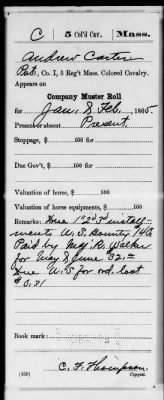 C | 5 Col'd Cav. | Mass.
Andrew Carter
Pvt., Co. I, 5 Reg't Mass. Colored Cavalry.
Appears on
Company Muster Roll
for Jan. & Feb., 1865.
Present or absent Present
Stoppage, $ 100 for
Due Gov't, $ 100 for
Valuation of horse, $ 100
Valuation of horse equipments, $ 100
Remarks: Due 1st 2d 3d install-
ments U.S. Bounty
Paid by Maj. R. Walker
for May & June
Due U.S for ord. lost
$0.31
Book mark:
C. F. Thompson
(358) Copyist.